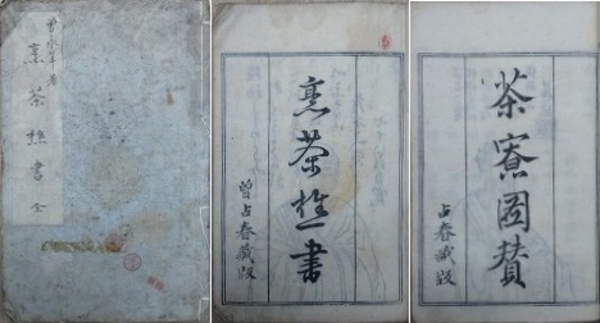 曽永年著
烹茶樵書 全
烹茶樵書
曽占春藏版
茶寮図賛
占春藏版